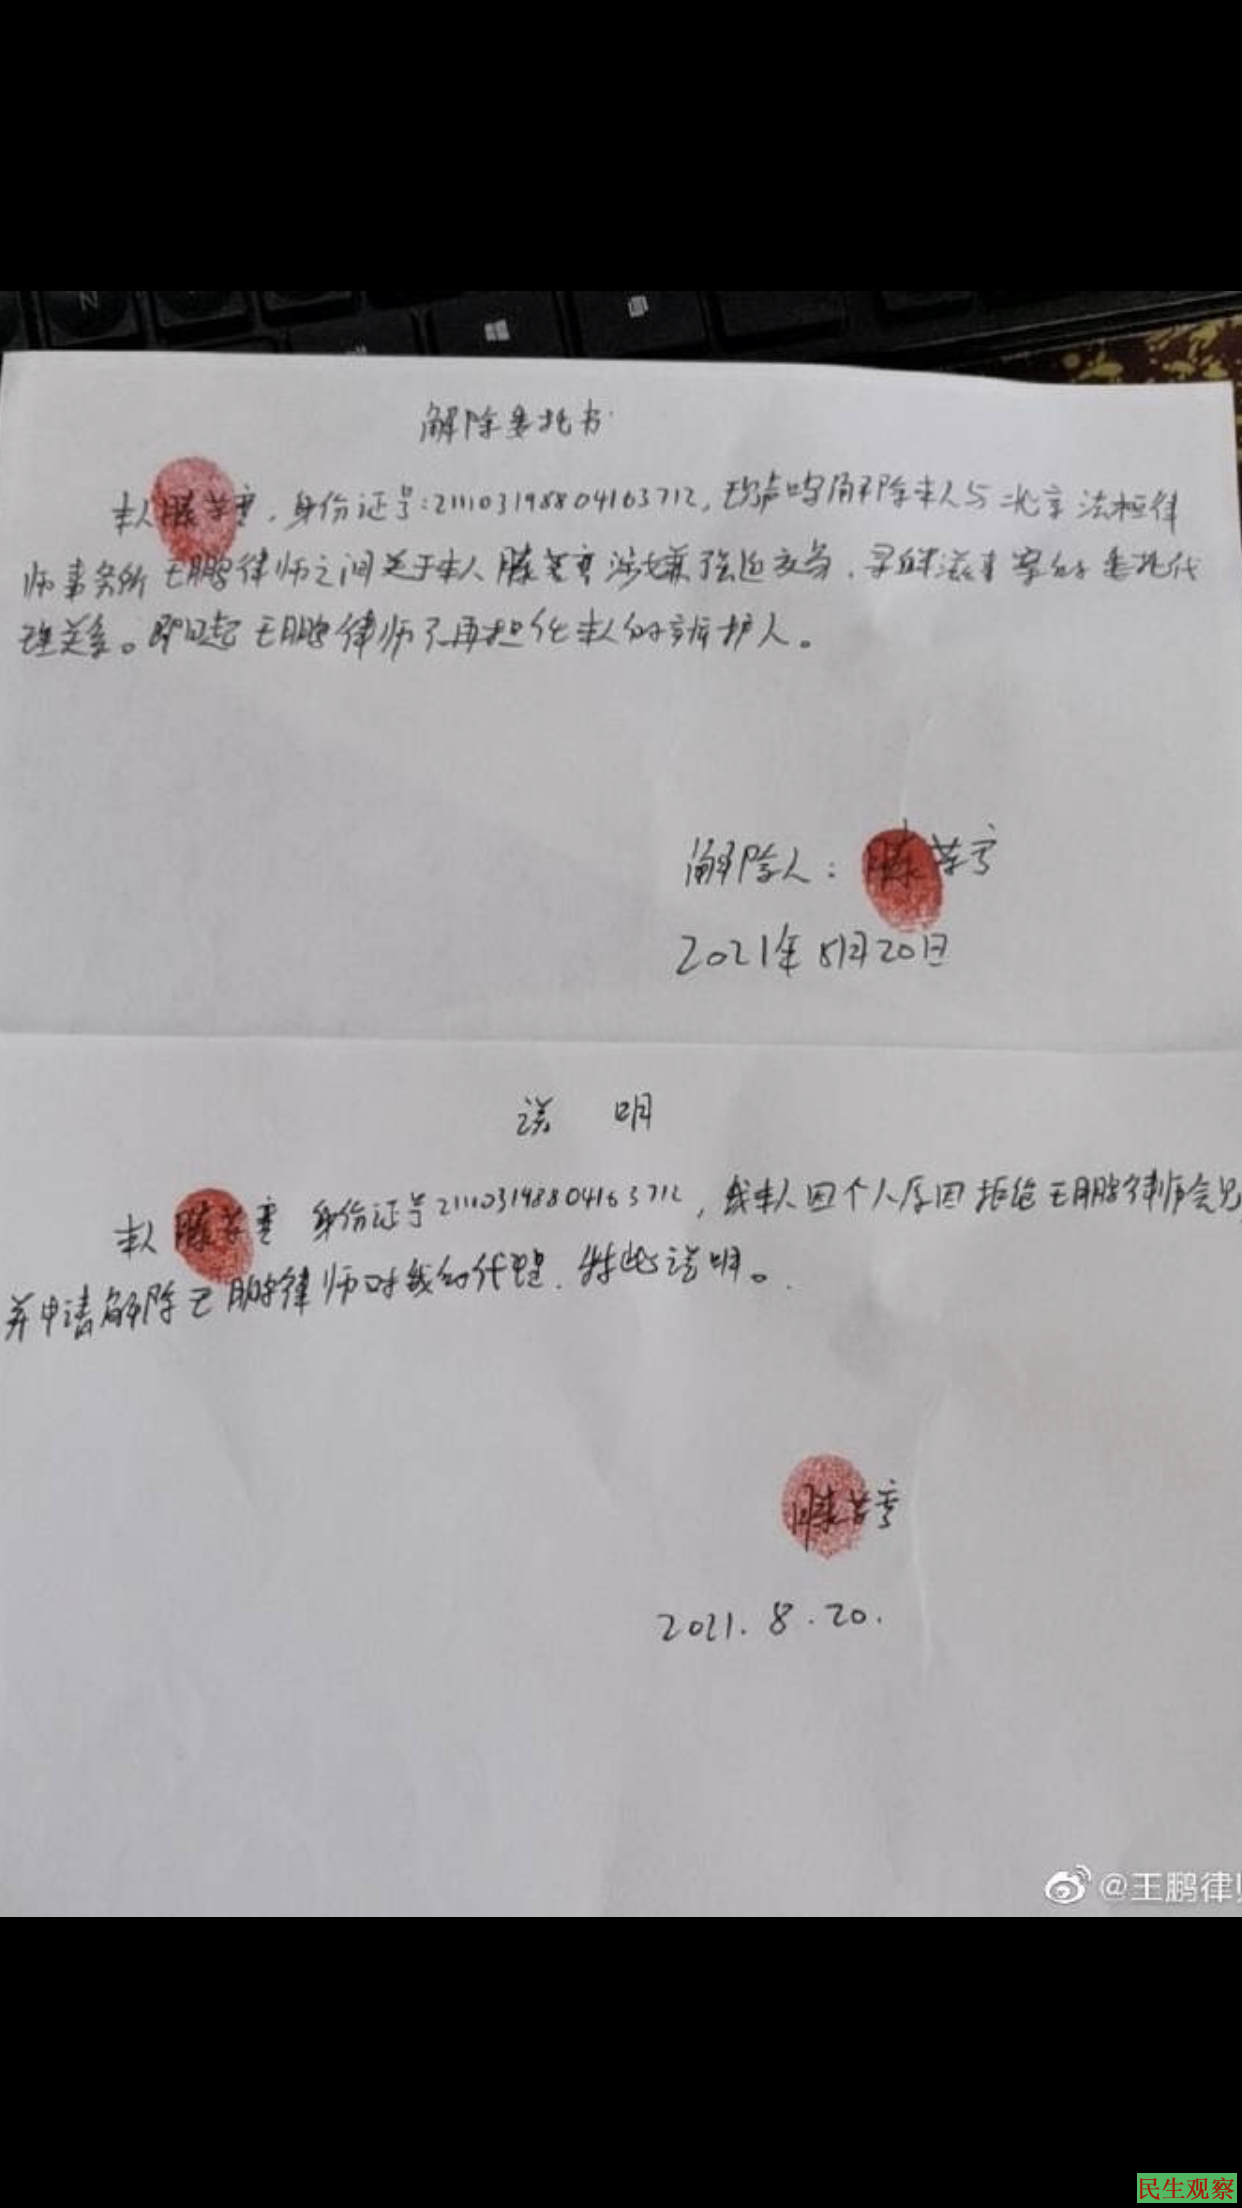 N
解除委托书
本人滕芳雯，身份证号:211103198804163712,现声明解除本人与北京法桓律
师事务所王鹏律师之间关于本人滕芳雯涉嫌强迫交易，寻衅滋事案的委托代
理关系。即日起王鹏律师不再担任本人的辩护人。
解除人：滕
2021年8月20日
说 明
本人滕 身份证号211103198804163712，我本人因个人原因拒绝王鹏律师会见
并申请解除王鹏律师对我的代理，特此说明。
滕
2021.8.20.
@王鹏律师
民生观察